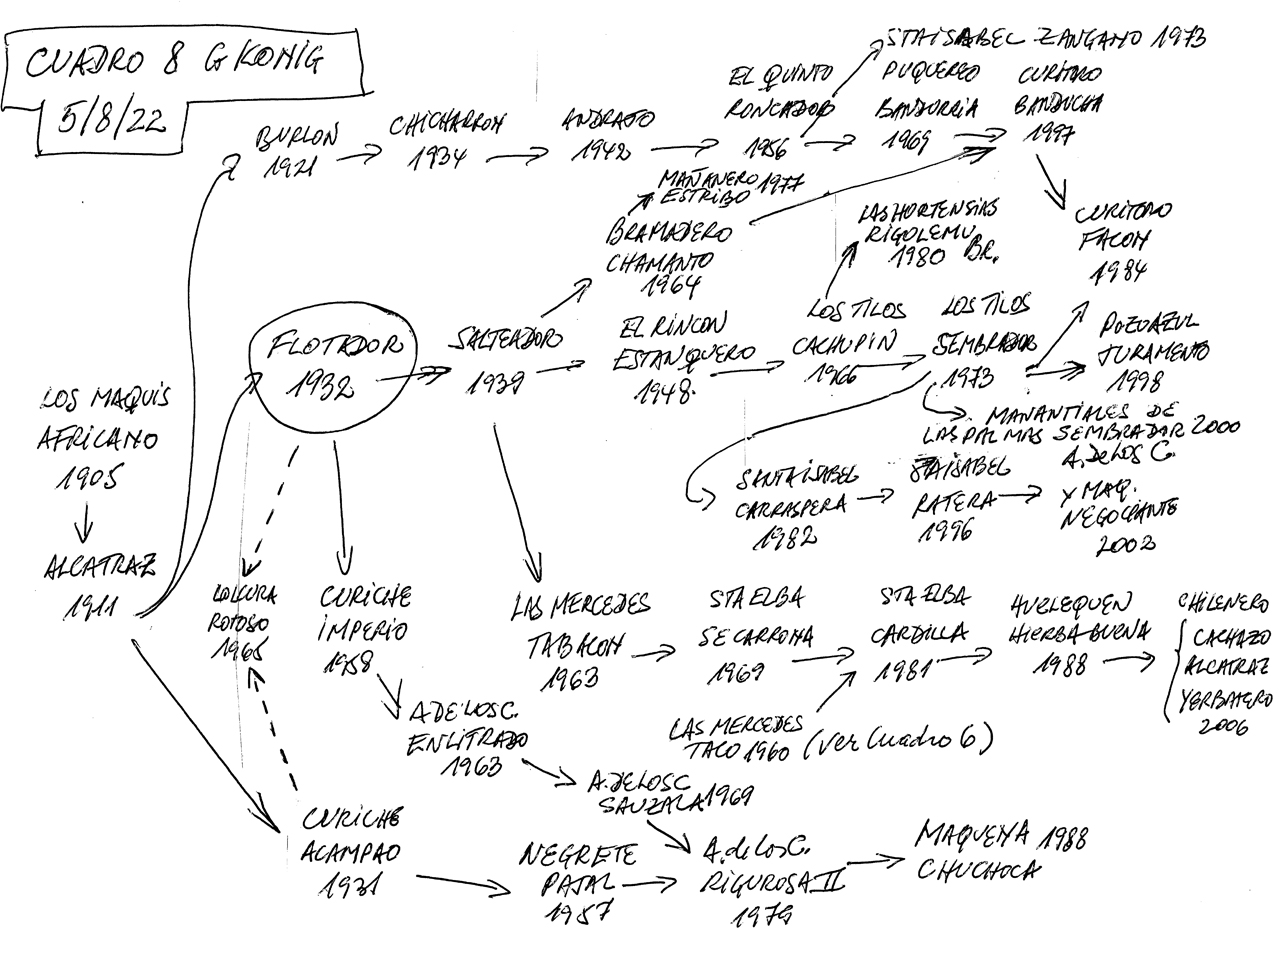 CUADRO 8 G KONIG
5/8/22
BURLON
1921
CHICHARRON
1934
ANDRAJO
1942
EL QUINTO
RONCADOR
1956
STAISABEL ZANGANO 1973
PUQUEREO
BANDURRIA
1969
CURITORO
BANDUCHA
1997
CURITORO
FACON
1984
MAÑANERO 1977
ESTRIBO
BRAMADERO
CHAMANTO
1964
LAS HORTENSIAS
RIGOLEMU
1980 BR.
LOS MAQUIS
AFRICANO
1905
ALCATRAZ
1911
FLOTADOR
1932
SALTEADOR
1939
EL RINCON
ESTANQUERO
1948.
LOS TILOS
CACHUPIN
1966
LOS TILOS
SEMBRADOR
1973
POZOAZUL
JURAMENTO
1998
MANANTIALES DE
LAS PALMAS SEMBRADOR 2000
SANTAISABEL
CARRASPERA
1982
STAISABEL
RATERA
1996
A. DE LOS C.
Y MAQ.
NEGOCIANTE
2002
LOLCURA
ROTOSO
1965
CURICHE
IMPERIO
1958
LAS MERCEDES
TABACON
1963
STA ELBA
SECARRONA
1969
STA ELBA
CARDILLA
1981
HUELEQUEN
HIERBA BUENA
1988
CHILENERO
CACHAZO
ALCATRAZ
YERBATERO
2006
LAS MERCEDES
TACO 1960 (Ver Cuadro 6)
A DE LOS C.
ENLITRADO
1963
A. DE LOS C
SAUZALA 1969
CURICHE
ACAMPAO
1931
NEGRETE
PAJAL
1957
A. de Los C.
RIGUROSA II
1979
MAQUENA 1988
CHUCHOCA